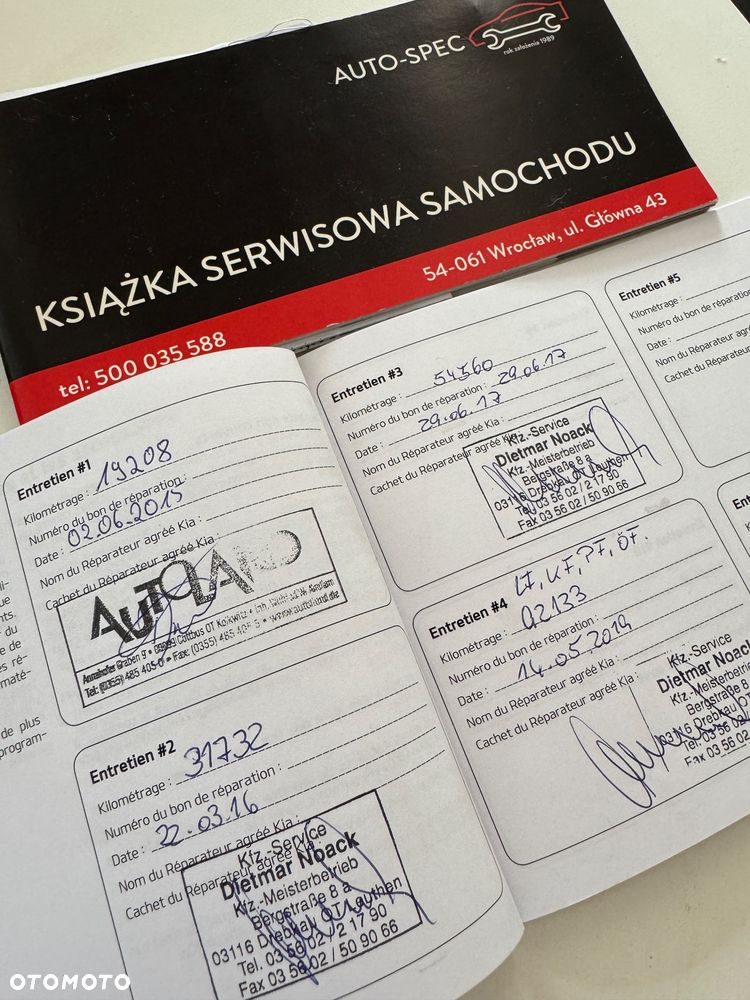 AUTO-SPEC
rok założenia 1989
KSIĄŻKA SERWISOWA SAMOCHODU
54-061 Wrocław, ul. Główna 43
tel: 500 035 588
Entretien #1
Kilométrage : 19208
Numéro du bon de réparation :
Date : 02.06.2015
Nom du Réparateur agréé Kia :
Cachet du Réparateur agréé Kia
AUTOLAND
Tel: (0355) 485 405 0 • Fax: (0355) 485 405 5 • www.autoland.de
Entretien #2
Kilométrage : 31732
Numéro du bon de réparation :
Date : 22.03.16
Nom du Réparateur agréé Kia :
Cachet du Réparateur agréé Kia
Kfz.-Service
Dietmar Noack
Kfz.-Meisterbetrieb
Bergstraße 8 a
03116 Drebkau OT Leuthen
Tel. 03 56 02 / 2 17 90
Fax 03 56 02 / 50 90 66
Entretien #3
Kilométrage : 54360
Numéro du bon de réparation : 29.06.17
Date : 29.06.17
Nom du Réparateur agréé Kia :
Cachet du Réparateur agréé Kia
Kfz.-Service
Dietmar Noack
Kfz.-Meisterbetrieb
Bergstraße 8 a
03116 Drebkau OT Leuthen
Tel. 03 56 02 / 2 17 90
Fax 03 56 02 / 50 90 66
LF, KF, PF, ÖF.
Entretien #4
Kilométrage : 92133
Numéro du bon de réparation :
Date : 14.05.2019
Nom du Réparateur agréé Kia :
Cachet du Réparateur agréé Kia :
Kfz.-Service
Dietmar Noack
Kfz.-Meisterbetrieb
Bergstraße 8 a
03116 Drebkau OT
Tel. 03 56 02
Fax 03 56 02
Entretien #5
Kilométrage :
Numéro du bon de réparation
Date :
Nom du Réparateur agréé
Cachet du Réparateur
Entretien
Kilométrage
Numéro du
Date :
Nom du
Cachet
de plus
program-
OTOMOTO